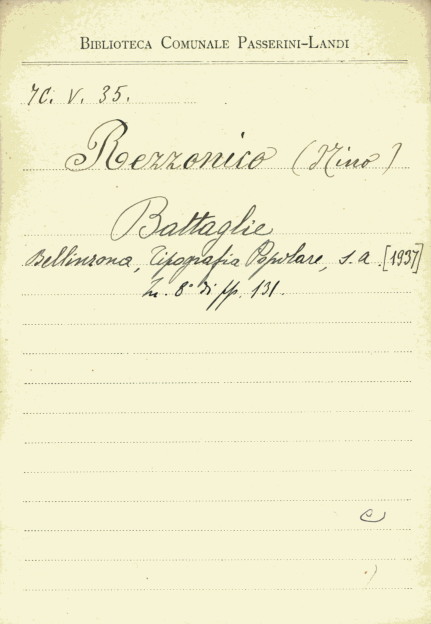 BIBLIOTECA COMUNALE PASSERINI-LANDI
7C. V. 35.
Rezzonico (Nino)
Battaglie
Bellinzona, Tipografia Popolare, s. a. [1937]
In 8° di pp. 131.